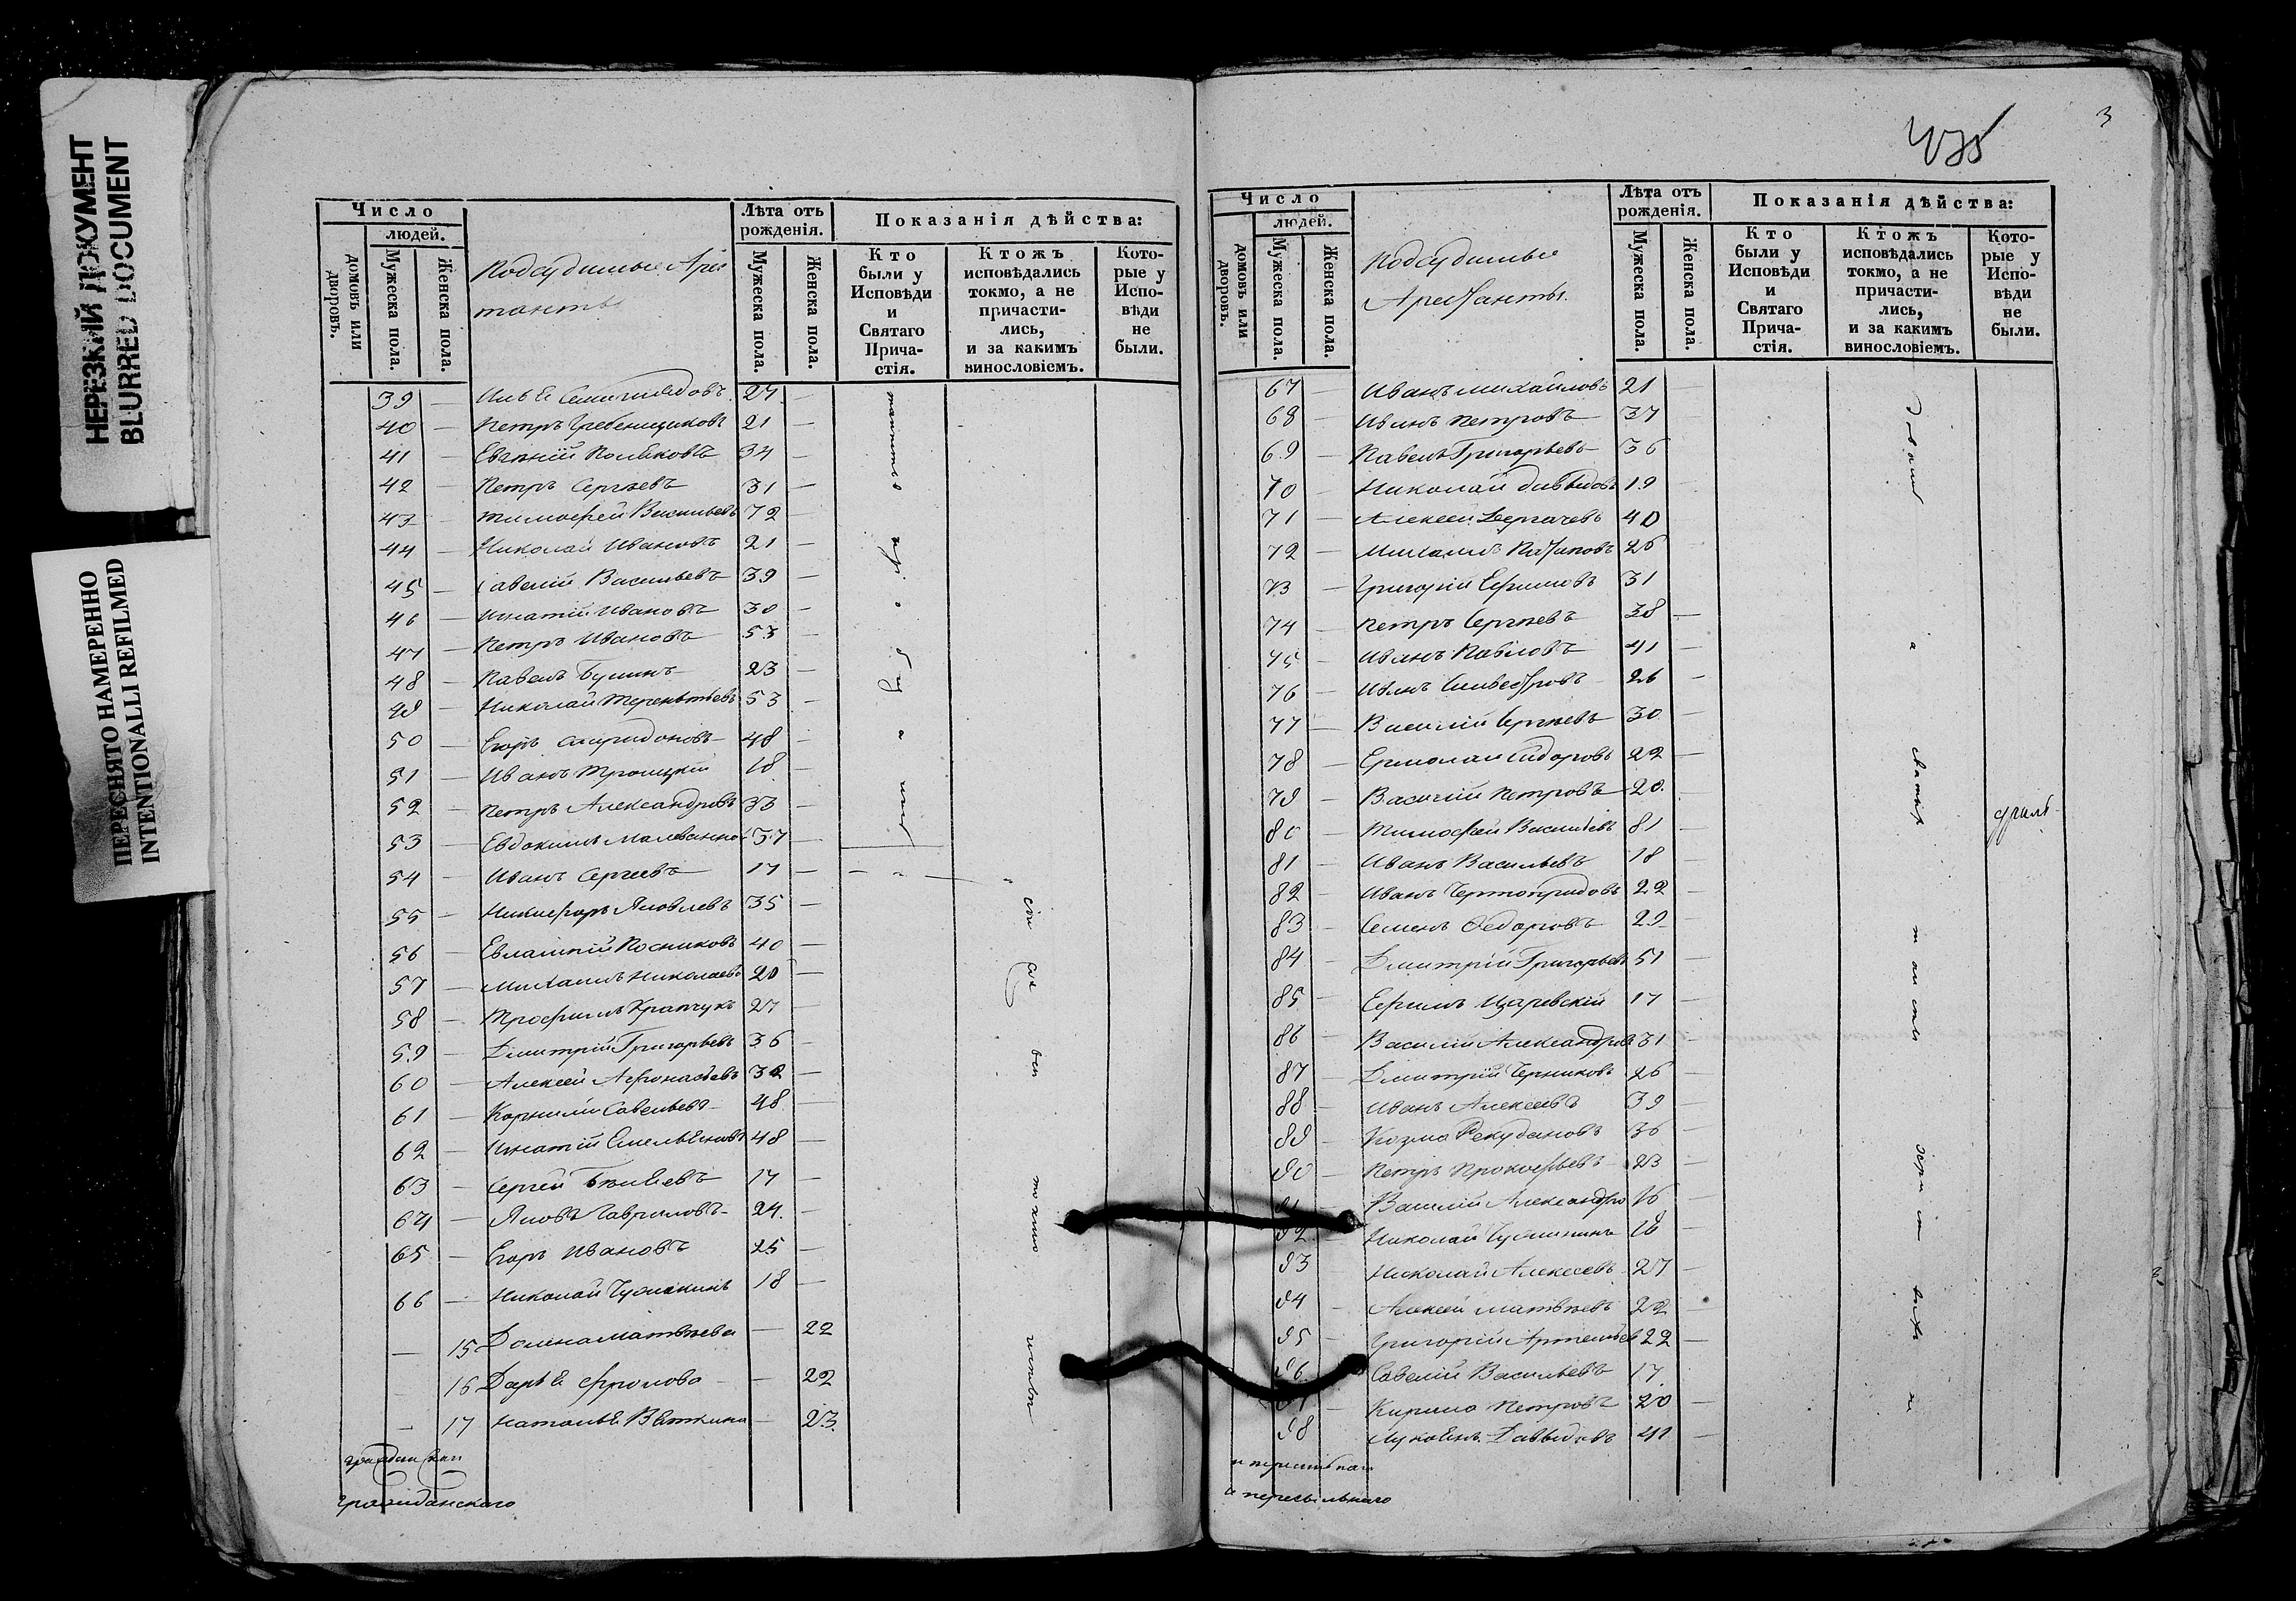 НЕРЕЗКИЙ ДОКУМЕНТ
BLURRED DOCUMENT
ПЕРЕСНЯТО НАМЕРЕННО
INTENTIONALLI REFILMED
Число
людей.
домовъ или дворовъ.
Мужеска пола.
Женска пола.
Подсудимые Арес
танты
Лѣта отъ рожденія.
Мужеска пола.
Женска пола.
Показанія дѣйства:
Кто были у Исповѣди и Святаго Прича-стія.
Ктожъ исповѣдались токмо, а не причасти-лись, и за какимъ винословіемъ.
Кото-рые у Испо-вѣди не были.
39 — 27 —
40 — Петръ Гребенщиковъ 21 —
41 — Евгеній Поляковъ 34 —
42 — Петръ Сергѣевъ 31 —
43 — Тимофей Васильевъ 72 —
44 — Николай Ивановъ 21 —
45 — Савелій Васильевъ 39 —
46 — Игнатій Ивановъ 30 —
47 — Петръ Ивановъ 53 —
48 — Павелъ Бунинъ 23 —
49 — Николай Терентьевъ 53 —
50 — Егоръ Спиридоновъ 48 —
51 — Иванъ Троицкій 18 —
52 — Петръ Александровъ 33 —
53 — Евдокимъ 57 —
54 — Иванъ Сергеевъ 17 —
55 — Никифоръ Яковлевъ 35 —
56 — Евлампій Посниковъ 40 —
57 — Михаилъ Николаевъ 20 —
58 — Трофимъ Кравчукъ 27 —
59 — Дмитрій Григорьевъ 36 —
60 — Алексей Афонасьевъ 32 —
61 — Корнилій Савельевъ 48 —
62 — Игнатій Емельяновъ 48 —
63 — Сергей Бѣляевъ 17 —
64 — Яковъ Гавриловъ 24 —
65 — Егоръ Ивановъ 25 —
66 — Николай Чумакинъ 18 —
— 15 Домна Матвѣева — 22
— 16 Дарья Фролова — 22
— 17 Наталья Вяткина — 23
гражданскаго
3
435
Число
людей.
домовъ или дворовъ.
Мужеска пола.
Женска пола.
Подсудимые
Арестанты.
Лѣта отъ рожденія.
Мужеска пола.
Женска пола.
Показанія дѣйства:
Кто были у Исповѣди и Святаго Прича-стія.
Ктожъ исповѣдались токмо, а не причасти-лись, и за какимъ винословіемъ.
Кото-рые у Испо-вѣди не были.
67 — Иванъ Михайловъ 21 —
68 — Иванъ Петровъ 37 —
69 — Павелъ Григорьевъ 36
70 — Николай Давыдовъ 19 —
71 — Алексей Дергачевъ 40 —
72 — Михаилъ Потаповъ 26
73 — Григорій Ефимовъ 31
74 — Петръ Сергѣевъ 38 —
75 — Иванъ Павловъ 41 —
76 — Иванъ Сильвестровъ 26 —
77 — Василій Сергѣевъ 30 —
78 — Ермолай Сидоровъ 22 —
79 — Василій Петровъ 20 —
80 — Тимофей Васильевъ 81 —
81 — Иванъ Васильевъ 18 —
82 — Иванъ 22 —
83 — Семенъ Федоровъ 29 —
84 — Дмитрій Григорьевъ 51 —
85 — Ефимъ Царевскій 17 —
86 — Василій Александровъ 31 —
87 — Дмитрій Черниковъ 26 —
88 — Иванъ Алексеевъ 39 —
89 — Козма 36 —
90 — Петръ Прокофьевъ 23 —
91 — Василій Александро 26 —
92 — Николай 18 —
93 Николай Алексеевъ 27 —
94 — Алексей Матвѣевъ 22 —
95 — Григорій Артемьев 22 —
96 Савелій Васильевъ 17
97 — Кирило Петровъ 20 —
98 Лукьянъ Давыдовъ 41 —
и пересыльнаго